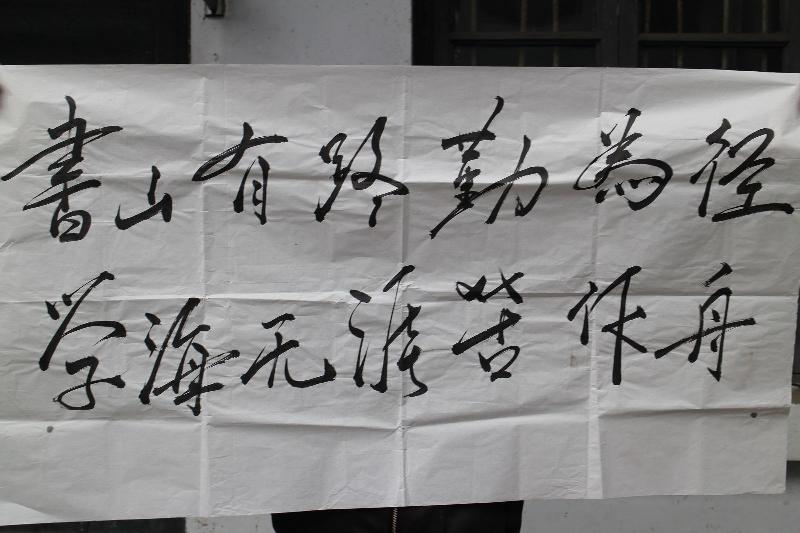 書山有路勤為径
学海无涯苦作舟